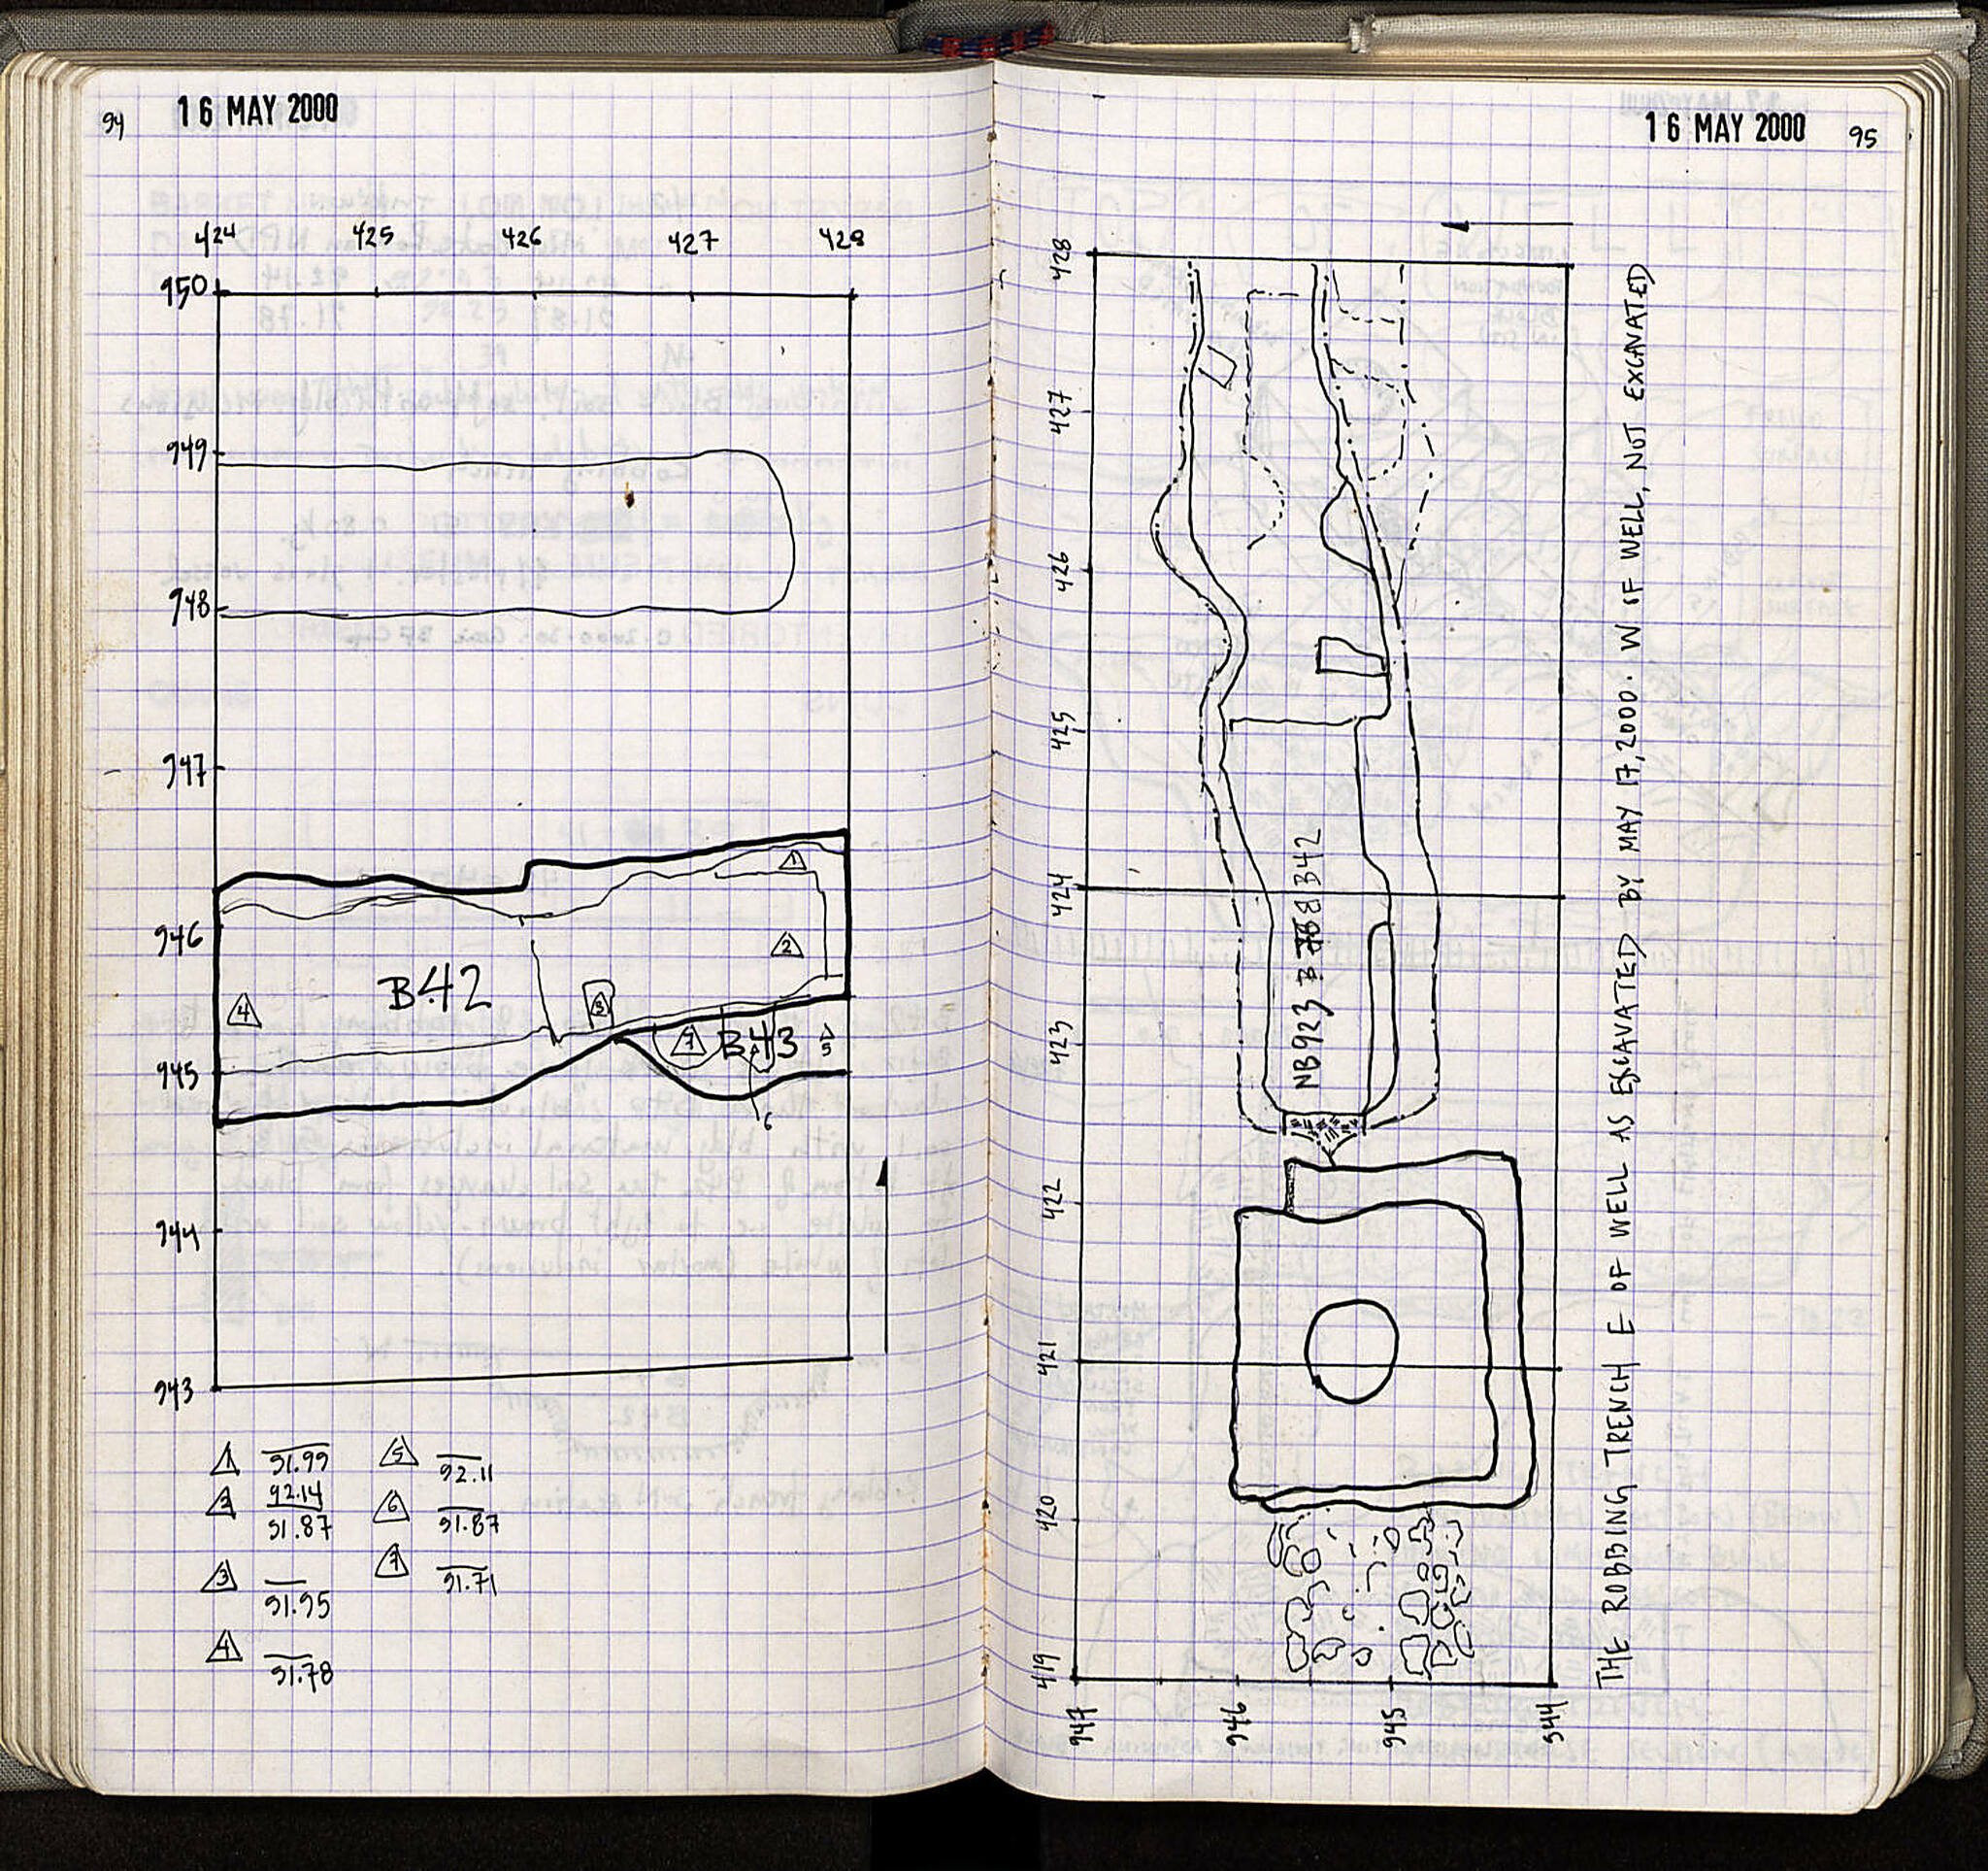 94
16 MAY 2000
424 425 426 427 428
950
949
948
947
946
945
944
943
1
2
3
4
B42
7
B43
5
6
1 91.99
2 92.14
91.87
3 91.95
4 91.78
5 92.11
6 91.87
7 91.71
16 MAY 2000
95
428
427
426
425
424
423
422
421
420
419
947 946 945 944
NB923 B38 B42
THE ROBBING TRENCH E OF WELL AS EXCAVATED BY MAY 17, 2000. W OF WELL, NOT EXCAVATED